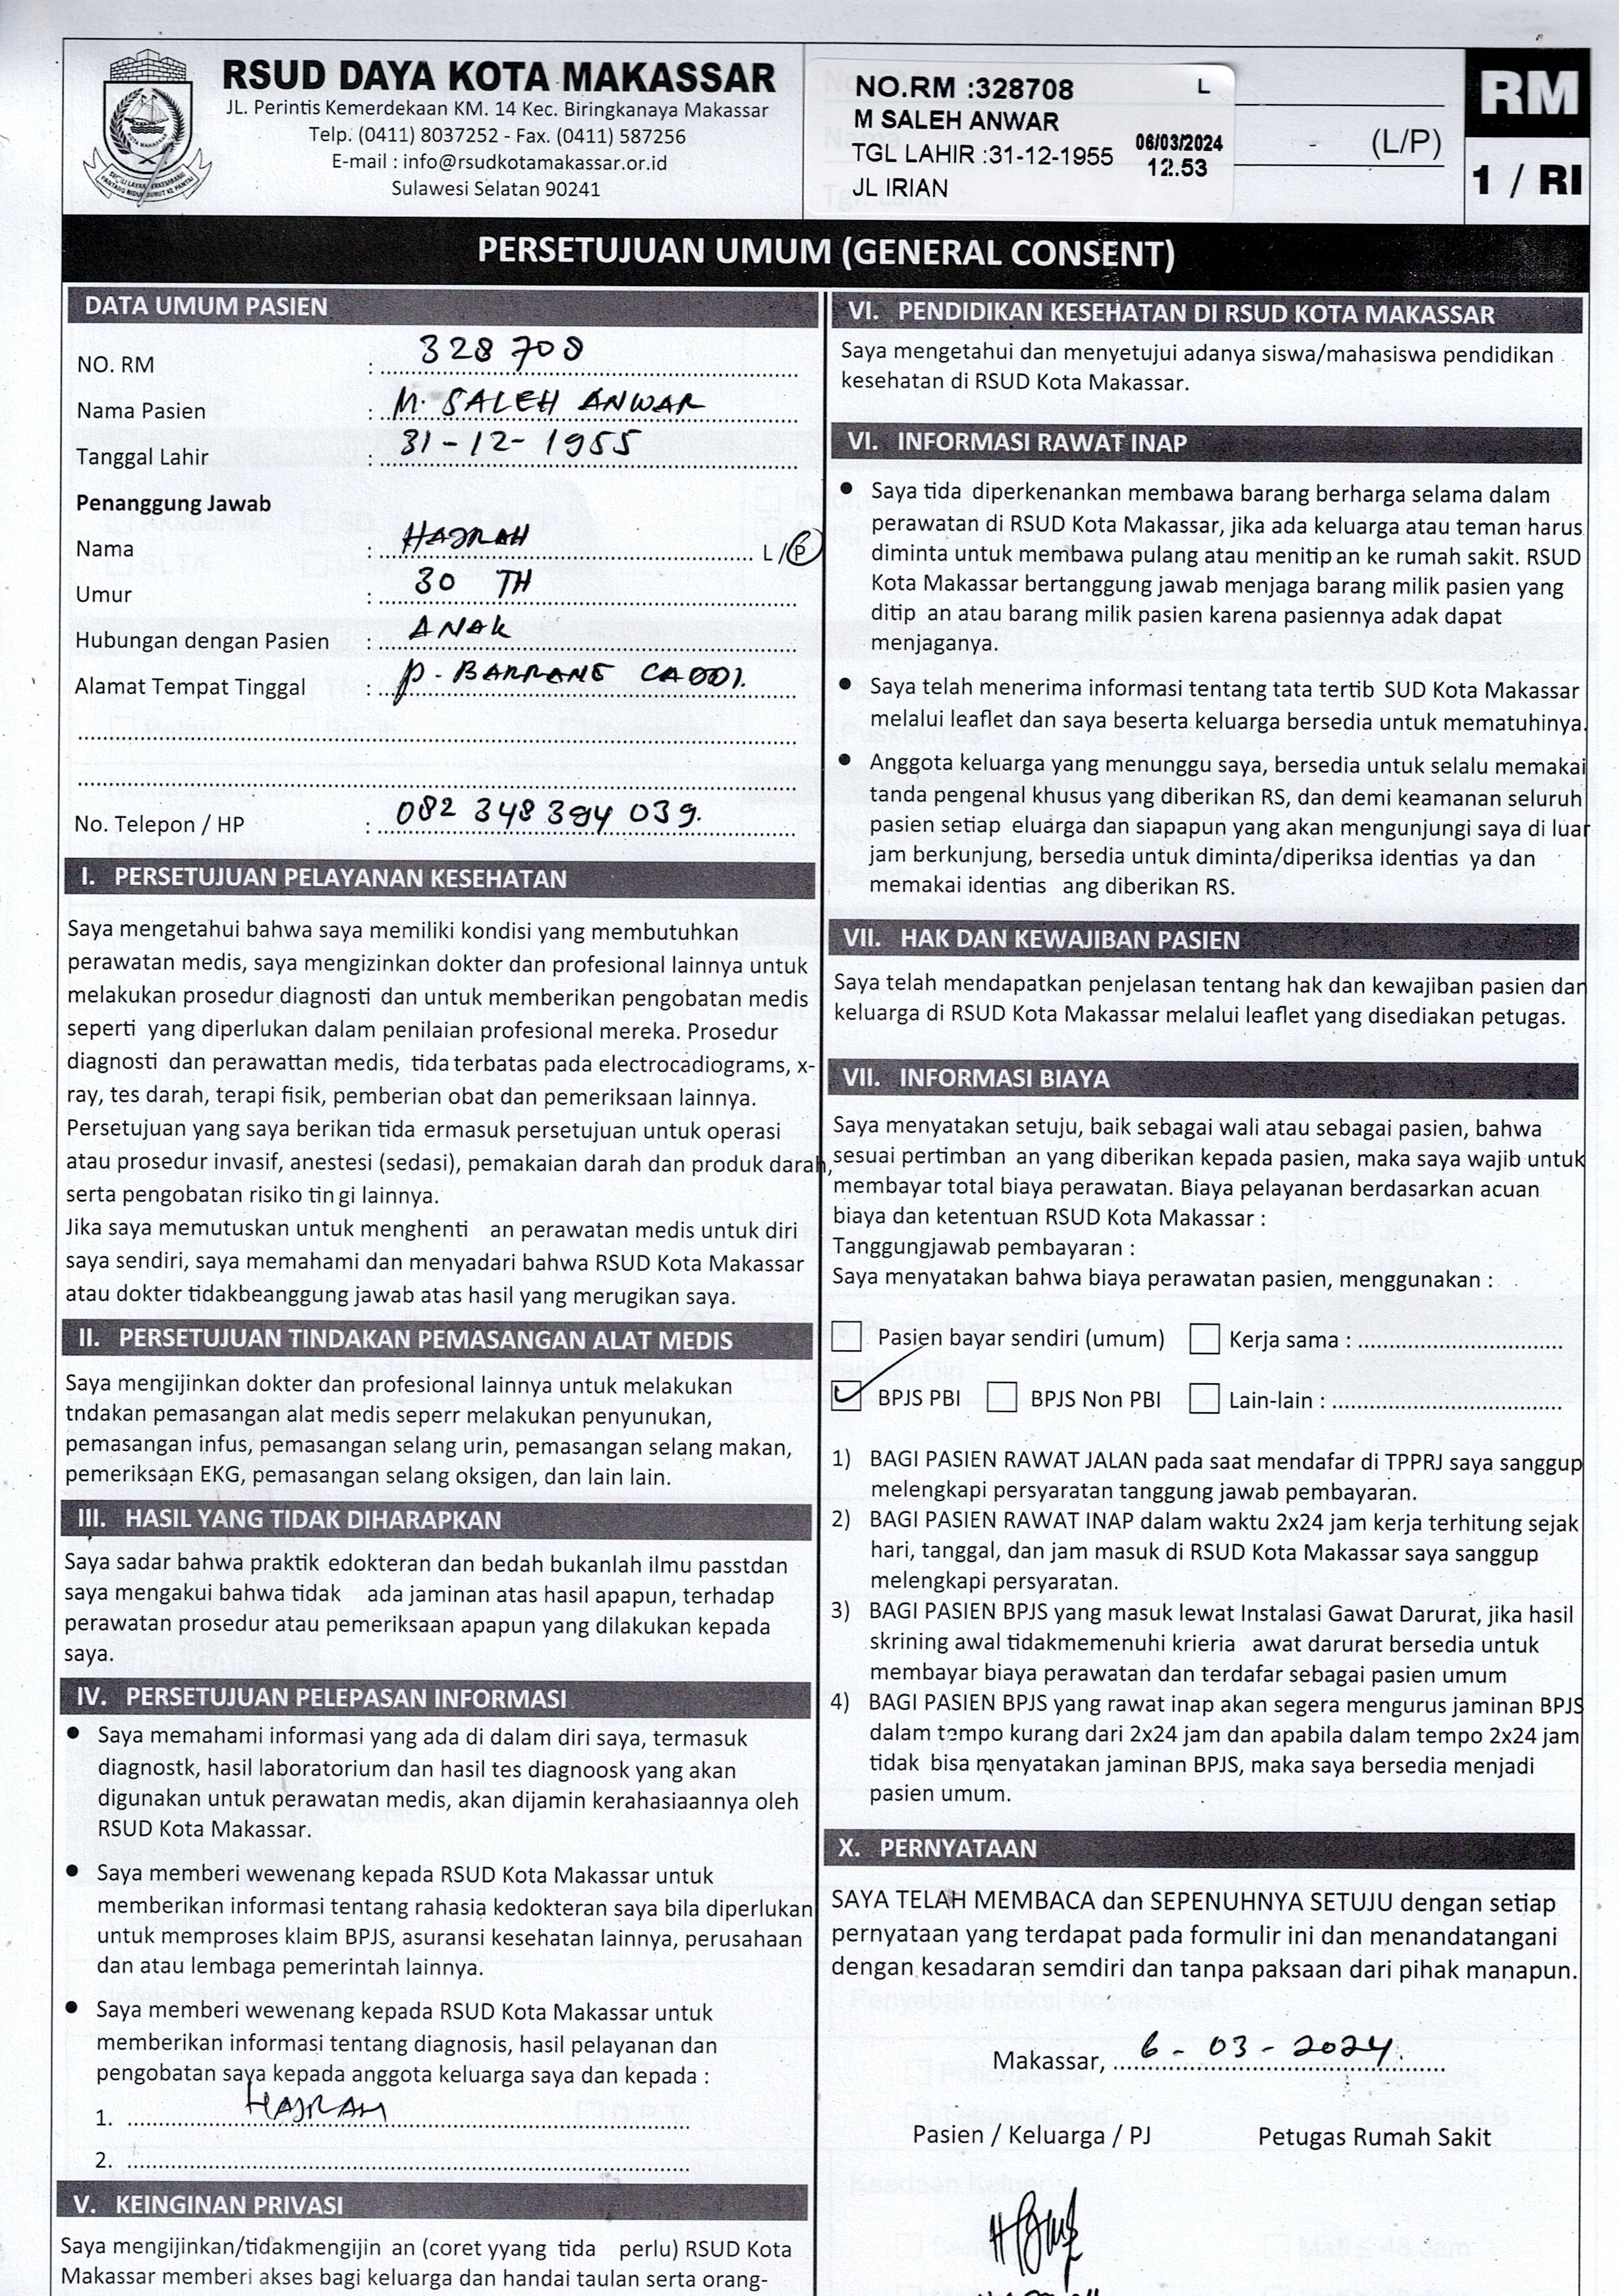 RSUD DAYA KOTA MAKASSAR
JL. Perintis Kemerdekaan KM. 14 Kec. Biringkanaya Makassar
Telp. (0411) 8037252 - Fax. (0411) 587256
E-mail : info@rsudkotamakassar.or.id
Sulawesi Selatan 90241
NO.RM :328708 L
M SALEH ANWAR
TGL LAHIR :31-12-1955 06/03/2024
12.53
JL IRIAN
(L/P)
RM
1 / RI
PERSETUJUAN UMUM (GENERAL CONSENT)
DATA UMUM PASIEN
NO. RM : 328708
Nama Pasien : M. SALEH ANWAR
Tanggal Lahir : 31-12-1955
Penanggung Jawab
Nama : HAJRAH L/P
Umur : 30 TH
Hubungan dengan Pasien : ANAK
Alamat Tempat Tinggal : P. BARRANG CADDI.
No. Telepon / HP : 082 348 394 039.
I. PERSETUJUAN PELAYANAN KESEHATAN
Saya mengetahui bahwa saya memiliki kondisi yang membutuhkan
perawatan medis, saya mengizinkan dokter dan profesional lainnya untuk
melakukan prosedur diagnosti dan untuk memberikan pengobatan medis
seperti yang diperlukan dalam penilaian profesional mereka. Prosedur
diagnosti dan perawattan medis, tida terbatas pada electrocadiograms, x-
ray, tes darah, terapi fisik, pemberian obat dan pemeriksaan lainnya.
Persetujuan yang saya berikan tida ermasuk persetujuan untuk operasi
atau prosedur invasif, anestesi (sedasi), pemakaian darah dan produk darah,
serta pengobatan risiko tin gi lainnya.
Jika saya memutuskan untuk menghenti an perawatan medis untuk diri
saya sendiri, saya memahami dan menyadari bahwa RSUD Kota Makassar
atau dokter tidakbeanggung jawab atas hasil yang merugikan saya.
II. PERSETUJUAN TINDAKAN PEMASANGAN ALAT MEDIS
Saya mengijinkan dokter dan profesional lainnya untuk melakukan
tndakan pemasangan alat medis seperr melakukan penyunukan,
pemasangan infus, pemasangan selang urin, pemasangan selang makan,
pemeriksaan EKG, pemasangan selang oksigen, dan lain lain.
III. HASIL YANG TIDAK DIHARAPKAN
Saya sadar bahwa praktik edokteran dan bedah bukanlah ilmu passtdan
saya mengakui bahwa tidak ada jaminan atas hasil apapun, terhadap
perawatan prosedur atau pemeriksaan apapun yang dilakukan kepada
saya.
IV. PERSETUJUAN PELEPASAN INFORMASI
● Saya memahami informasi yang ada di dalam diri saya, termasuk
diagnostk, hasil laboratorium dan hasil tes diagnoosk yang akan
digunakan untuk perawatan medis, akan dijamin kerahasiaannya oleh
RSUD Kota Makassar.
● Saya memberi wewenang kepada RSUD Kota Makassar untuk
memberikan informasi tentang rahasia kedokteran saya bila diperlukan
untuk memproses klaim BPJS, asuransi kesehatan lainnya, perusahaan
dan atau lembaga pemerintah lainnya.
● Saya memberi wewenang kepada RSUD Kota Makassar untuk
memberikan informasi tentang diagnosis, hasil pelayanan dan
pengobatan saya kepada anggota keluarga saya dan kepada :
1. HAJRAH
2.
V. KEINGINAN PRIVASI
Saya mengijinkan/tidakmengijin an (coret yyang tida perlu) RSUD Kota
Makassar memberi akses bagi keluarga dan handai taulan serta orang-
VI. PENDIDIKAN KESEHATAN DI RSUD KOTA MAKASSAR
Saya mengetahui dan menyetujui adanya siswa/mahasiswa pendidikan
kesehatan di RSUD Kota Makassar.
VI. INFORMASI RAWAT INAP
● Saya tida diperkenankan membawa barang berharga selama dalam
perawatan di RSUD Kota Makassar, jika ada keluarga atau teman harus
diminta untuk membawa pulang atau menitip an ke rumah sakit. RSUD
Kota Makassar bertanggung jawab menjaga barang milik pasien yang
ditip an atau barang milik pasien karena pasiennya adak dapat
menjaganya.
● Saya telah menerima informasi tentang tata tertib SUD Kota Makassar
melalui leaflet dan saya beserta keluarga bersedia untuk mematuhinya.
● Anggota keluarga yang menunggu saya, bersedia untuk selalu memakai
tanda pengenal khusus yang diberikan RS, dan demi keamanan seluruh
pasien setiap eluarga dan siapapun yang akan mengunjungi saya di luar
jam berkunjung, bersedia untuk diminta/diperiksa identias ya dan
memakai identias ang diberikan RS.
VII. HAK DAN KEWAJIBAN PASIEN
Saya telah mendapatkan penjelasan tentang hak dan kewajiban pasien dan
keluarga di RSUD Kota Makassar melalui leaflet yang disediakan petugas.
VII. INFORMASI BIAYA
Saya menyatakan setuju, baik sebagai wali atau sebagai pasien, bahwa
sesuai pertimban an yang diberikan kepada pasien, maka saya wajib untuk
membayar total biaya perawatan. Biaya pelayanan berdasarkan acuan
biaya dan ketentuan RSUD Kota Makassar :
Tanggungjawab pembayaran :
Saya menyatakan bahwa biaya perawatan pasien, menggunakan :
Pasien bayar sendiri (umum) Kerja sama :
BPJS PBI BPJS Non PBI Lain-lain :
1) BAGI PASIEN RAWAT JALAN pada saat mendafar di TPPRJ saya sanggup
melengkapi persyaratan tanggung jawab pembayaran.
2) BAGI PASIEN RAWAT INAP dalam waktu 2x24 jam kerja terhitung sejak
hari, tanggal, dan jam masuk di RSUD Kota Makassar saya sanggup
melengkapi persyaratan.
3) BAGI PASIEN BPJS yang masuk lewat Instalasi Gawat Darurat, jika hasil
skrining awal tidakmemenuhi krieria awat darurat bersedia untuk
membayar biaya perawatan dan terdafar sebagai pasien umum
4) BAGI PASIEN BPJS yang rawat inap akan segera mengurus jaminan BPJS
dalam tempo kurang dari 2x24 jam dan apabila dalam tempo 2x24 jam
tidak bisa menyatakan jaminan BPJS, maka saya bersedia menjadi
pasien umum.
X. PERNYATAAN
SAYA TELAH MEMBACA dan SEPENUHNYA SETUJU dengan setiap
pernyataan yang terdapat pada formulir ini dan menandatangani
dengan kesadaran semdiri dan tanpa paksaan dari pihak manapun.
Makassar, 6 - 03 - 2024.
Pasien / Keluarga / PJ Petugas Rumah Sakit